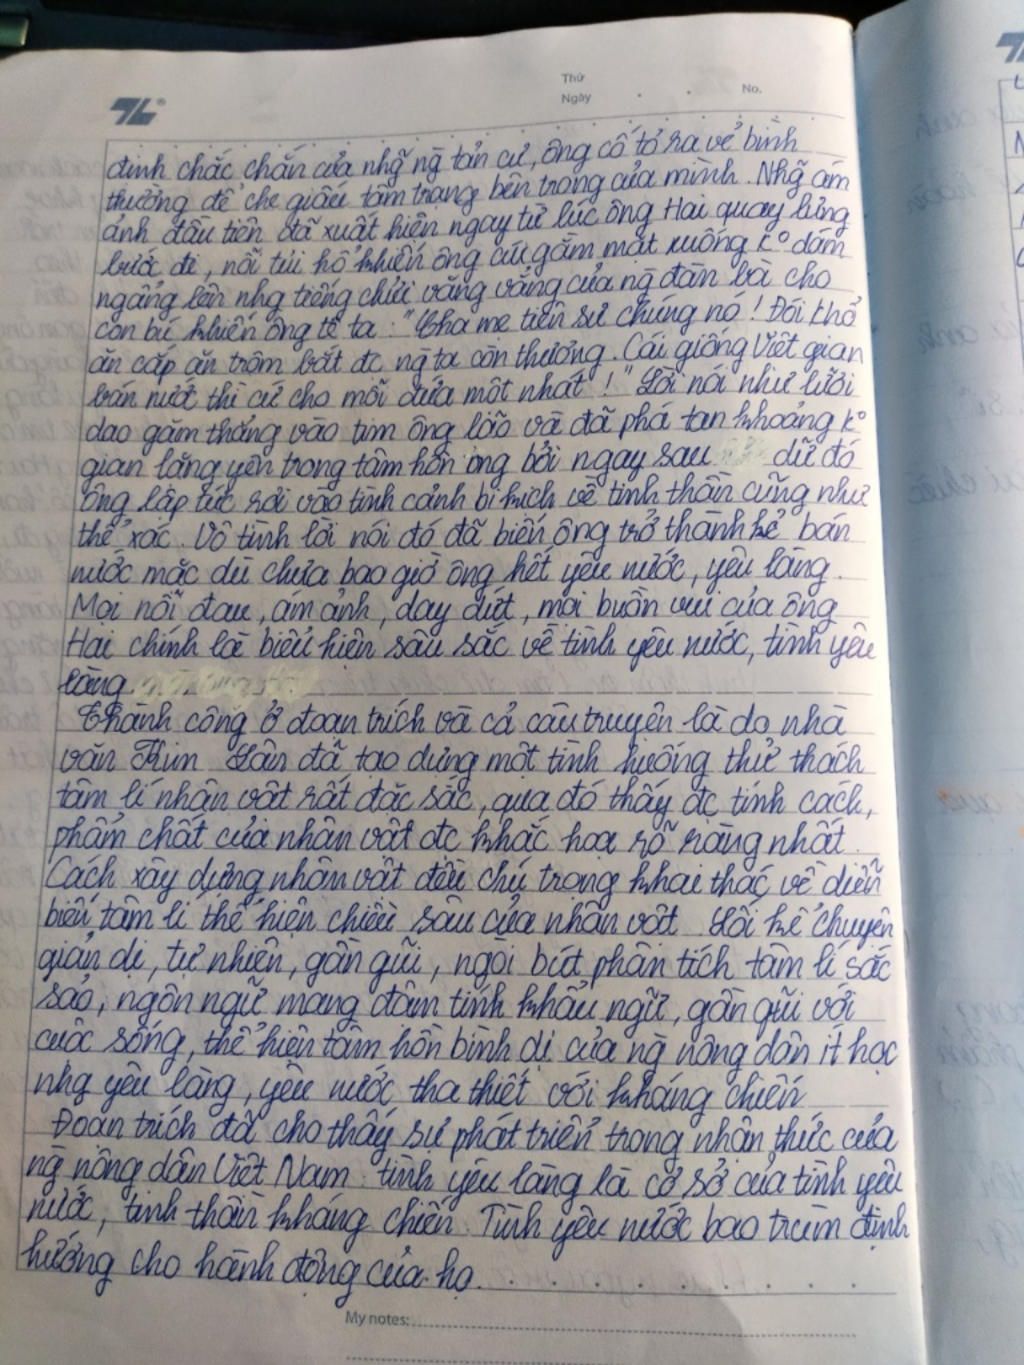 Thứ
Ngày . . No.
TL®
định chắc chắn của nhg̃ ng̀ tản cư, ông cố tỏ ra vẻ bình
thường để che giấu tâm trạng bên trong của mình. Nhg̃ ám
ảnh đầu tiên đã xuất hiện ngay từ lúc ông Hai quay lưng
bước đi, nỗi tủi hổ khiến ông cúi gằm mặt xuống k° dám
ngẩng lên nhg tiếng chửi văng vẳng của ng̀ đàn bà cho
con bú khiến ông tê tá: "Cha mẹ tiên sư chúng nó! Đói khổ
ăn cắp ăn trộm bắt đc ng̀ ta còn thương. Cái giống Việt gian
bán nước thì cứ cho mỗi đứa một nhát!" Lời nói như lưỡi
dao găm thẳng vào tim ông lão và đã phá tan khoảng k°
gian lặng yên trong tâm hồn ông bởi ngay sau dữ đó
ông lập tức rơi vào tình cảnh bi kịch về tinh thần cũng như
thể xác. Vô tình lời nói đó đã biến ông trở thành kẻ bán
nước mặc dù chưa bao giờ ông hết yêu nước, yêu làng.
Mọi nỗi đau, ám ảnh, day dứt, mọi buồn vui của ông
Hai chính là biểu hiện sâu sắc về tình yêu nước, tình yêu
làng.
Thành công ở đoạn trích và cả câu truyện là do nhà
văn Kim Lân đã tạo dựng một tình huống thử thách
tâm lí nhân vật rất đặc sắc, qua đó thấy đc tính cách,
phẩm chất của nhân vật đc khắc họa rõ ràng nhất.
Cách xây dựng nhân vật đều chú trọng khai thác về diễn
biến tâm lí thể hiện chiều sâu của nhân vật. Lối kể chuyện
giản dị, tự nhiên, gần gũi, ngòi bút phân tích tâm lí sắc
sảo, ngôn ngữ mang đậm tính khẩu ngữ, gần gũi với
cuộc sống, thể hiện tâm hồn bình dị của ng̀ nông dân ít học
nhg yêu làng, yêu nước tha thiết với kháng chiến
Đoạn trích đã cho thấy sự phát triển trong nhận thức của
ng̀ nông dân Việt Nam: tình yêu làng là cơ sở của tình yêu
nước, tinh thần kháng chiến. Tình yêu nước bao trùm định
hướng cho hành động của họ.
My notes: